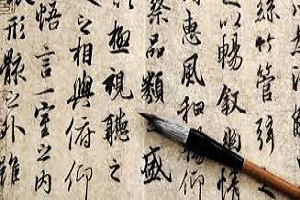 絲竹管弦
以暢敘幽情
惠風和暢仰
察品類之盛
以極視聽之
之相與俯仰
悟言一室之内
形骸之外雖